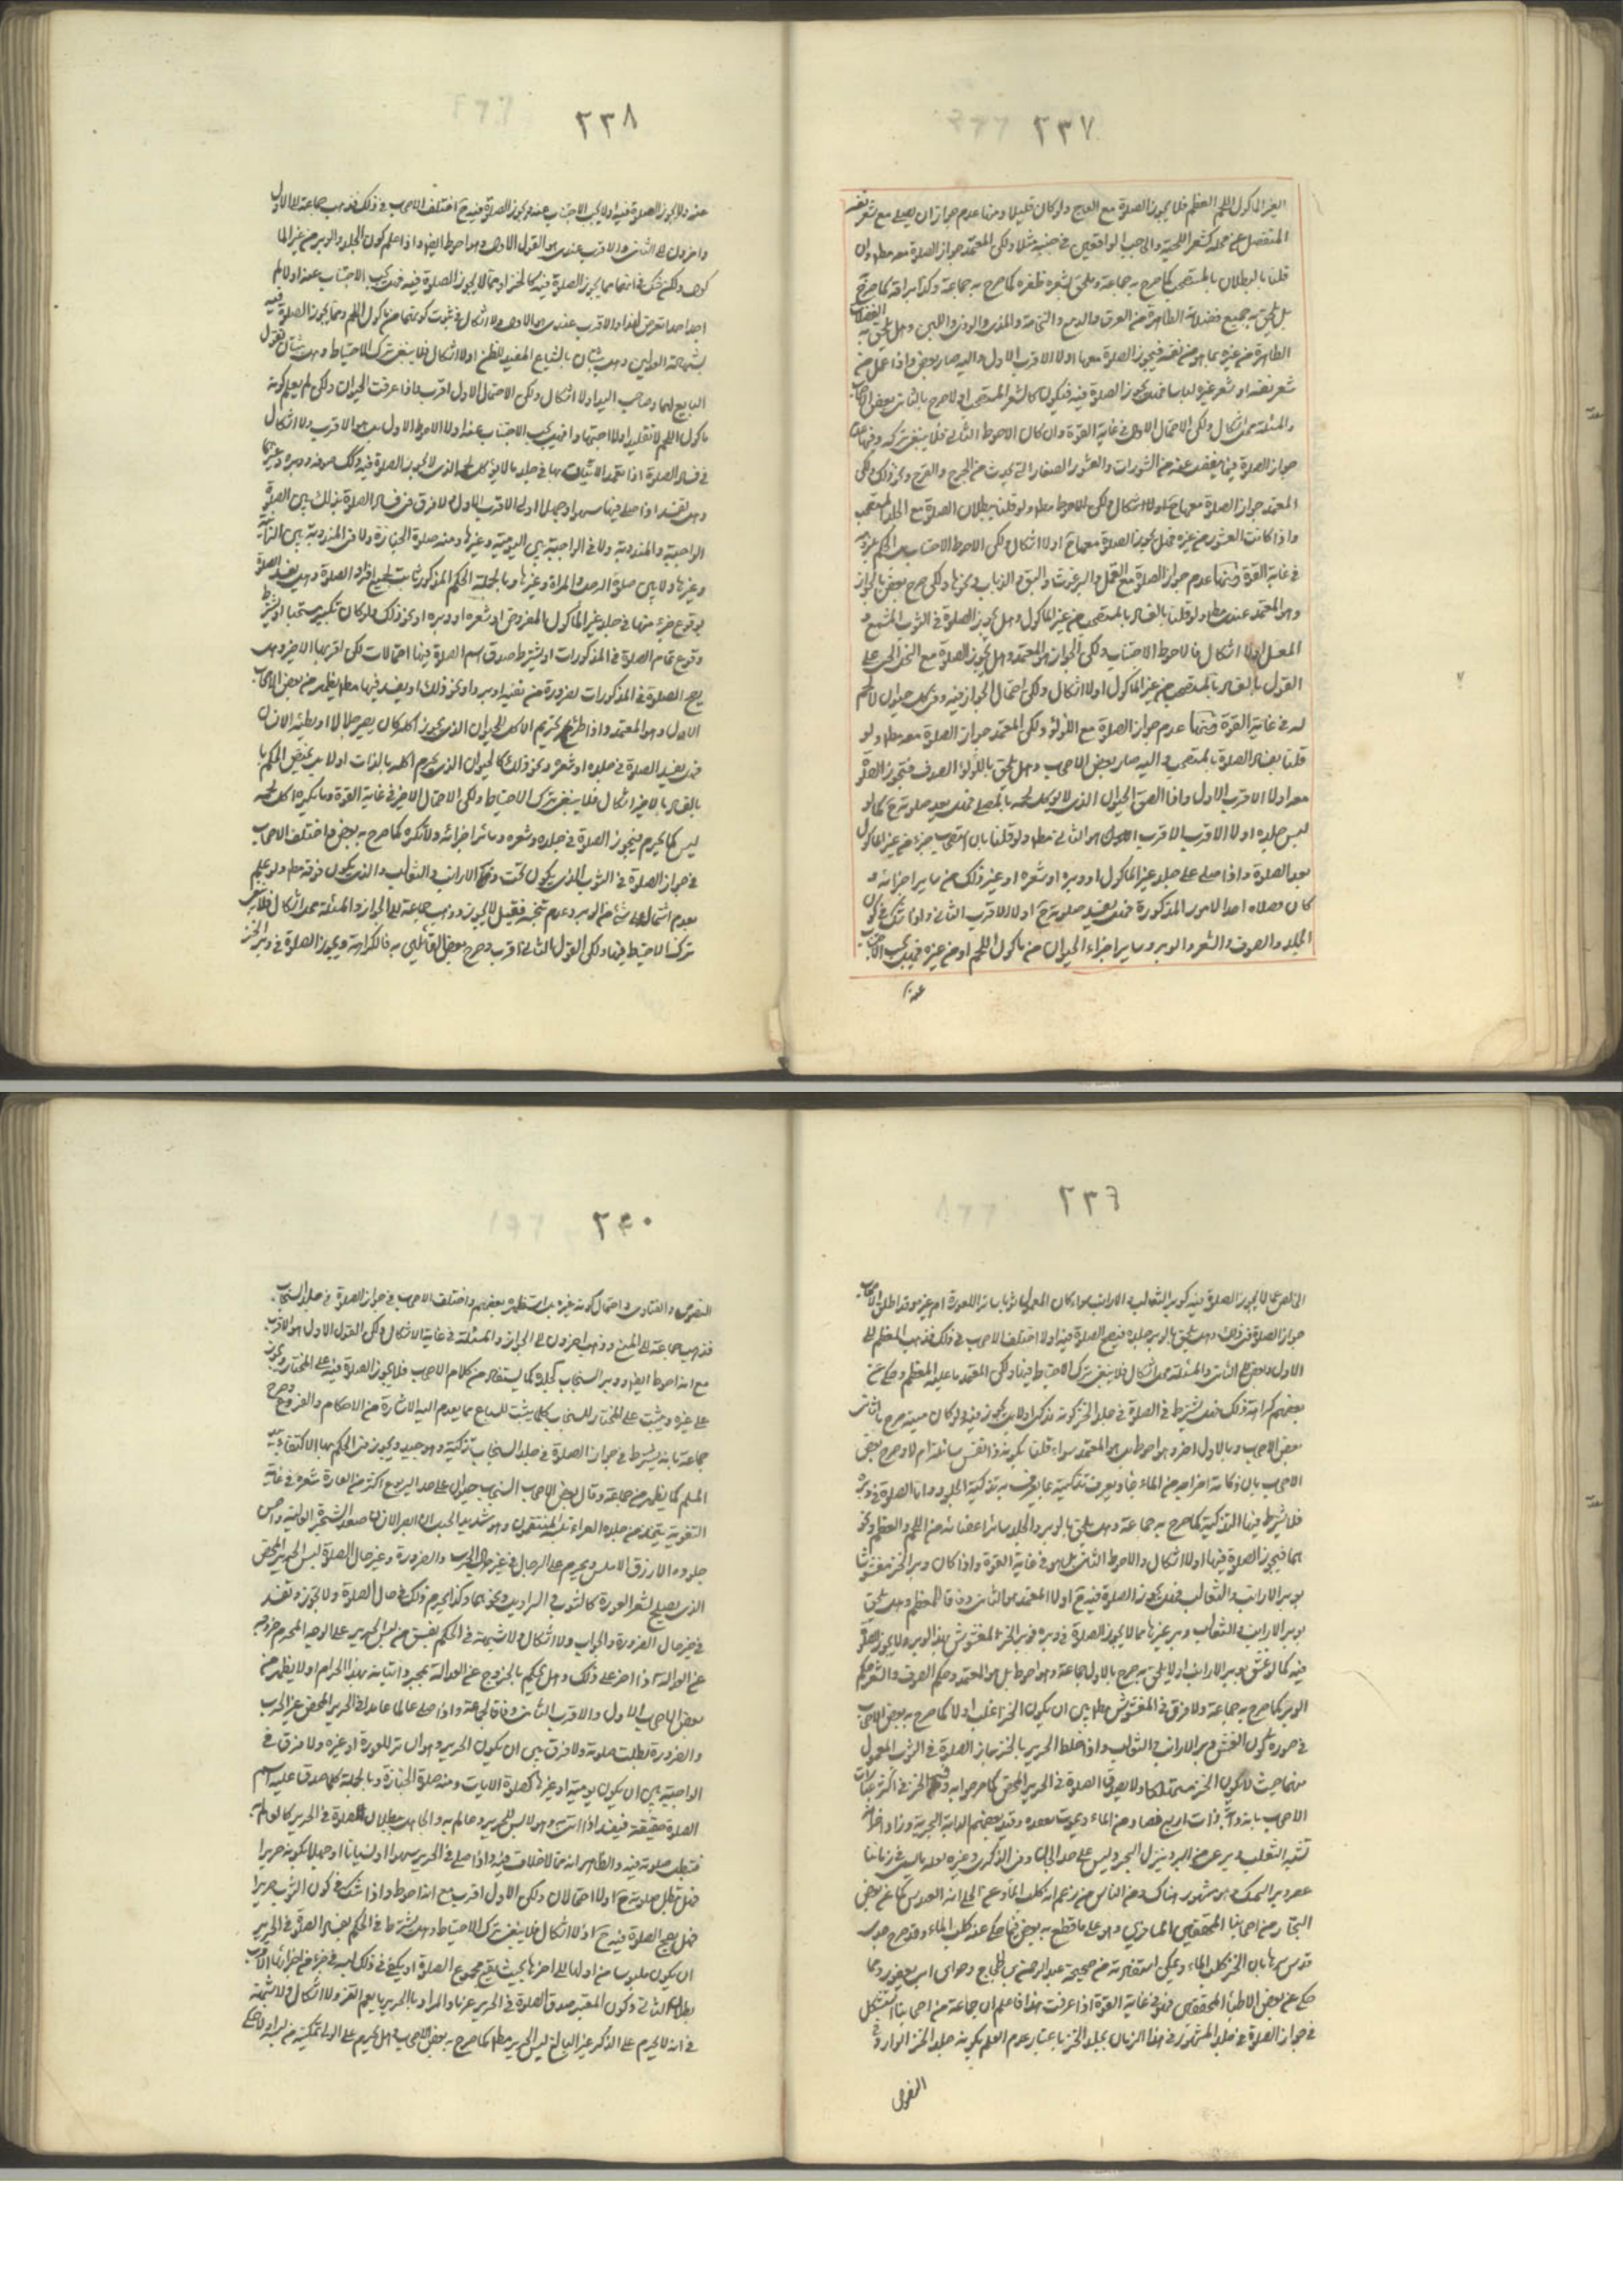 ٢٣٧
الغير المأكول اللحم العظم فلا يجوز الصلوة مع العاج ولو كان قليلا ومنها عدم جواز ان يصلي مع شعر نفسه
المنفصل عن محله كشعر اللحية والحاجب الواقعين في جنبه مثلا ولكن المعتمد جواز الصلوة معه مطلقا وان
قلنا بالبطلان بالمستصحب كما صرح به جماعة ويلحق بشعره ظفره كما صرح به جماعة وكذا بزاقه كما صرح
بل يلحق به جميع فضلاته الطاهرة من العرق والدمع والنخامة والمذي والوذي واللبن وهل يلحق به الفضلات
الطاهرة من غيره بما هو من نفسه فيجوز الصلوة معها اولا الاقرب الاول واليه صار بعض واذا عمل من
شعر نفسه او شعر غيره لباسا فهل يجوز الصلوة فيه فيكون كالشعر المستصحب اولا صرح بالثاني بعض الاصحاب
والمسئلة محل اشكال ولكن الاحتمال الاول في غاية القوة وان كان الاحوط الثاني فلا ينبغي تركه ومنها عدم
جواز الصلوة فيما ينفصل عنه من الثؤرات والقشور الصغار التي يحدث من الجرح والقرح ونحو ذلك ولكن
المعتمد جواز الصلوة معها ح بلا اشكال ولكن الاحوط مطلقا ولو قلنا ببطلان الصلوة مع الجلد المستصحب
واذا كانت القشور من غيره فهل يجوز الصلوة معها ح اولا اشكال ولكن الاحوط الاجتناب
في غاية القوة ومنها عدم جواز الصلوة مع القمل والبرغوث والبق والذباب ونحوها ولكن صرح بعض بالجواز
وهو المعتمد عندي مطلقا ولو قلنا بالفساد بالمستصحب من غير المأكول وهل يجوز الصلوة في الثوب المشمع و
المعسل اولا اشكال فالاحوط الاجتناب ولكن الجواز هو المعتمد وهل يجوز الصلوة مع النحل الحي على
القول بالفساد بالمستصحب من غير المأكول اولا اشكال ولكن احتمال الجواز فيه وفي كل حيوان لا لحم
له في غاية القوة ومنها عدم جواز الصلوة مع اللؤلؤ ولكن المعتمد جواز الصلوة معه مطلقا ولو
قلنا بفساد الصلوة بالمستصحب واليه صار بعض الاصحاب وهل يلحق باللؤلؤ الصدف فتجوز الصلوة
معه اولا الاقرب الاول واذا الصق الحيوان الذي لا يؤكل لحمه بالمصلي فهل يفسد صلوته ح كما لو
لبس جلده اولا الاقرب هو الثاني مطلقا ولو قلنا بان استصحاب جزء من غير المأكول
يفسد الصلوة واذا صلى على جلد غير المأكول او وبره او شعره او غير ذلك من ساير اجزائه و
كان مصلاه احد الامور المذكورة فهل يفسد صلوته ح اولا الاقرب الثاني واذا شك في كون
الجلد والصوف والشعر والوبر وساير اجزاء الحيوان من مأكول اللحم او من غيره فهل يجب الاجتناب
عنه
٢٣٨
عنه ولا يجوز الصلوة فيه اولا يجب الاجتناب عنه ويجوز الصلوة فيه ح اختلف الاصحاب في ذلك فذهب جماعة الى الاول
واخرون الى الثاني والاقرب عندي هو القول الاول وهو احوط ايضا واذا علم كون الجلد والوبر من غير الما
كول ولكن شك في انهما مما يجوز الصلوة فيه كالخز او مما لا يجوز الصلوة فيه فهل يجب الاجتناب عنه اولا لم
اجد احدا تعرض لهذا والاقرب عندي هو الاول ولا اشكال في ثبوت كونهما من مأكول اللحم ومما يجوز الصلوة فيه
بشهادة العدلين وهل يثبتان بالشياع المفيد للظن اولا اشكال فلا ينبغي ترك الاحتياط وهل يثبتان بقول
البايع لهما وصاحب اليد اولا اشكال ولكن الاحتمال الاول اقرب واذا عرفت الحيوان ولكن لم يعلم كونه
مأكول اللحم لا تقليدا ولا اجتهادا فهل يجب الاجتناب عنه اولا الاحوط الاول بل هو الاقرب ولا اشكال
في فساد الصلوة اذا تعمد الاتيان بها في جلد ما لا يؤكل لحمه الذي لا يجوز الصلوة فيه وكك صوفه ووبره وغيرهما
وهل يفسد اذا صلى فيها سهوا وجهلا اولا الاقرب الاول ولا فرق في فساد الصلوة بذلك بين الصلوة
الواجبة والمندوبة ولا في الواجبة بين اليومية وغيرها ومنه صلوة الجنازة ولا في المندوبة بين الراتبة
وغيرها ولا بين صلوة الرجل والمراة وغيرها وبالجملة الحكم المذكور ثابت لجميع افراد الصلوة وهل يفسد الصلوة
بوقوع جزء منها في جلد غير المأكول المفروض او شعره او وبره او نحو ذلك ولو كان تكبيرا مستحبا او يشترط
وقوع تمام الصلوة في المذكورات او يشترط صدق اسم الصلوة فيها احتمالات لكن اقربها الاخير وهل
يصح الصلوة في المذكورات لضرورة من تقية او برد او نحو ذلك او يفسد فيها مطلقا يظهر من بعض الاصحاب
الاول وهو المعتمد واذا طرء تحريم الاكل للحيوان الذي يجوز اكله كان يصير جلالا او يطئه الانسان
فهل يفسد الصلوة في جلده او شعره ونحو ذلك كالحيوان الذي يحرم اكله بالذات اولا بل يختص الحكم با
بالفساد بالاخير اشكال فلا ينبغي ترك الاحتياط ولكن الاحتمال الاخير في غاية القوة وما يكره اكل لحمه
ليس كما يحرم فيجوز الصلوة في جلده وشعره وسائر اجزائه ولا تكره كما صرح به بعض واختلف الاصحاب
في جواز الصلوة في الثوب الذي يكون تحت وبر الارانب والثعالب والذي يكون فوقه مطلقا ولو علم
بعدم اشتماله على شئ من الوبر وعدم تنجسه فقيل لا يجوز وذهب جماعة الى الجواز والمسئلة محل اشكال فلا ينبغي
ترك الاحتياط فيها ولكن القول الثاني اقرب وصرح بعض القائلين به بالكراهة ويجوز الصلوة في وبر الخز
٢٣٩
الخالص مما لا يجوز الصلوة فيه كوبر الثعالب والارانب سواء كان المعمول ثوبا ساترا للعورة ام غيره وقد اطلق الاصحاب
جواز الصلوة في ذلك وهل يلحق بالوبر جلده فيصح الصلوة فيه اولا اختلف الاصحاب في ذلك فذهب المعظم الى
الاول وبعض الى الثاني والمسئلة محل اشكال فلا ينبغي ترك الاحتياط فيها ولكن المعتمد ما عليه المعظم وحكي عن
بعضهم كراهة ذلك فهل يشترط في الصلوة في جلد الخز كونه مذكى اولا بل يجوز فيه ولو كان ميتة صرح بالثاني
بعض الاصحاب وبالاول اخر وهو احوط بل هو المعتمد سواء قلنا بكونه ذا نفس سائلة ام لا وصرح بعض
الاصحاب بان ذكاته اخراجه من الماء حيا ويعرف تذكيته بما يعرف به تذكية الجلود واما الصلوة في وبره
فلا يشترط فيها التذكية كما صرح به جماعة وهل يلحق بالوبر والجلد سائر اعضائه من اللحم والعظم ونحو
هما فيجوز الصلوة فيها اولا اشكال والاحوط الثاني بل هو في غاية القوة واذا كان وبر الخز مغشوشا
بوبر الارانب والثعالب فهل يجوز الصلوة فيه ح اولا المعتمد هو الثاني وفاقا للمعظم وهل يلحق
بوبر الارانب والثعالب وبر غيرها مما لا يجوز الصلوة في وبره فوبر الخز المغشوش بهذا الوبر ولا يجوز الصلوة
فيه كما لو غش بوبر الارانب اولا يلحق به صرح بالاول جماعة وهو احوط بل هو المعتمد وحكم الصوف والشعر حكم
الوبر كما صرح به جماعة ولا فرق في المغشوش مطلقا بين ان يكون الخز اغلب اولا كما صرح به بعض الاصحاب
في صورة كون الغش بوبر الارانب والثعالب واذا خلط الحرير بالخز جاز الصلوة في الثوب المعمول
منهما حيث لا يكون الخز مستهلكا ولا يصدق الصلوة في الحرير المحض كما صرحوا به وفسر الخز في اكثر عبارات
الاصحاب بانه دابة ذات اربع تصاد من الماء ويموت بفقده وقيد بعضهم الدابة بالبحرية وزاد اخر انها
تشبه الثعلب ويرعى من البر وينزل البحر وليس على حد الحيتان وفي الذكرى وغيره لعله ما يسمى في زماننا
بمصر وبر السمك وهو مشهور هناك ومن الناس من زعم انه كلب الماء وعن الحلي انه القندس كما عن بعض
التجار
قدس سرهما بان الخز كلب الماء ويمكن استفادته من صحيحة عبد الرحمن بن الحجاج وخبر ابن ابي يعفور وهما
حكي عن بعض الاطباء المحققين فهو في غاية القوة اذا عرفت هذا فاعلم ان جماعة من اصحابنا استشكل
في جواز الصلوة في جلد المشهور في هذا الزمان بجلد الخز باعتبار عدم العلم بكونه جلد الخز الوارد في
النصوص
٢٤٠
النصوص والفتاوى واحتمال كونه غيره بل استظهره بعضهم واختلف الاصحاب في جواز الصلوة في جلد السنجاب
فذهب جماعة الى المنع وذهب اخرون الى الجواز والمسئلة في غاية الاشكال ولكن القول الاول هو الاقرب
مع انه احوط ايضا ووبر السنجاب كجلده كما يستفاد من كلام الاصحاب فلا يجوز الصلوة فيه على المختار ويجوز
على غيره ويثبت على المختار للسنجاب كلما يثبت للسباع مما يعدم اليه الاشارة من الاحكام والفروع وصرح
جماعة بانه يشترط في جواز الصلوة في جلد السنجاب تذكيته وهو جيد ويجوز في الحكم بها الاكتفاء بيد
المسلم كما يظهر من جماعة وقال بعض الاصحاب السنجاب حيوان على حد اليربوع اكبر من الفارة شعره في غاية
النعومة يتخذ من جلده الفراء يلبسه المتنعمون وهو شديد الحيل ان ابصر الانسان صعد الشجرة العالية واحسن
جلوده الازرق الاملس ويحرم على الرجال في غير حال الحرب والضرورة وغير حال الصلوة لبس الحرير المحض
الذي يصلح لستر العورة كالثوب والسراويل ونحوهما وكذا يحرم ذلك في حال الصلوة ولا يجوز وتفسد
في غير حال الضرورة والحرب ولا اشكال ولا شبهة في الحكم بفسق من لبس الحرير على الوجه المحرم وخروجه
عن العدالة اذا اصر على ذلك وهل يحكم بالخروج عن العدالة بمجرد اتيانه بهذا الحرام اولا يظهر من
بعض الاصحاب الاول والاقرب الثاني وفاقا لجماعة واذا صلى عالما عامدا في الحرير المحض غير الحرب
والضرورة بطلت صلوته ولا فرق بين ان يكون الحرير هو الساتر للعورة او غيره ولا فرق في
الواجبة بين ان يكون يومية او غيرها كصلوة الايات ومنه صلوة الجنازة وبالجملة كلما صدق عليه اسم
الصلوة حقيقة فيفسد اذا اتى به وهو لابس للحرير وعالم به والجاهل ببطلان الصلوة في الحرير كالعالم به
فتبطل صلوته فيه والظاهر انه مما لا خلاف فيه واذا صلى في الحرير سهوا او نسيانا او جهلا بكونه حريرا
فهل تبطل صلوته ح اولا احتمالان ولكن الاول اقرب مع انه احوط واذا شك في كون الثوب حريرا
فهل يصح الصلوة فيه ح اولا اشكال فلا ينبغي ترك الاحتياط وهل يشترط في الحكم بفساد الصلوة في الحرير
ان يكون ملبوسا من اولها الى اخرها بحيث يقع مجموع الصلوة او يكفي في ذلك لبسه في جزء من اجزائها الاقرب
بطلان الثاني وكون المعتبر صدق الصلوة في الحرير عرفا والمراد بالحرير ما يعم القز ولا اشكال ولا شبهة
في انه لا يحرم على الذكر غير البالغ لبس الحرير مطلقا كما صرح به بعض الاصحاب وهل يحرم على الولي تمكينه من لبسه اولا